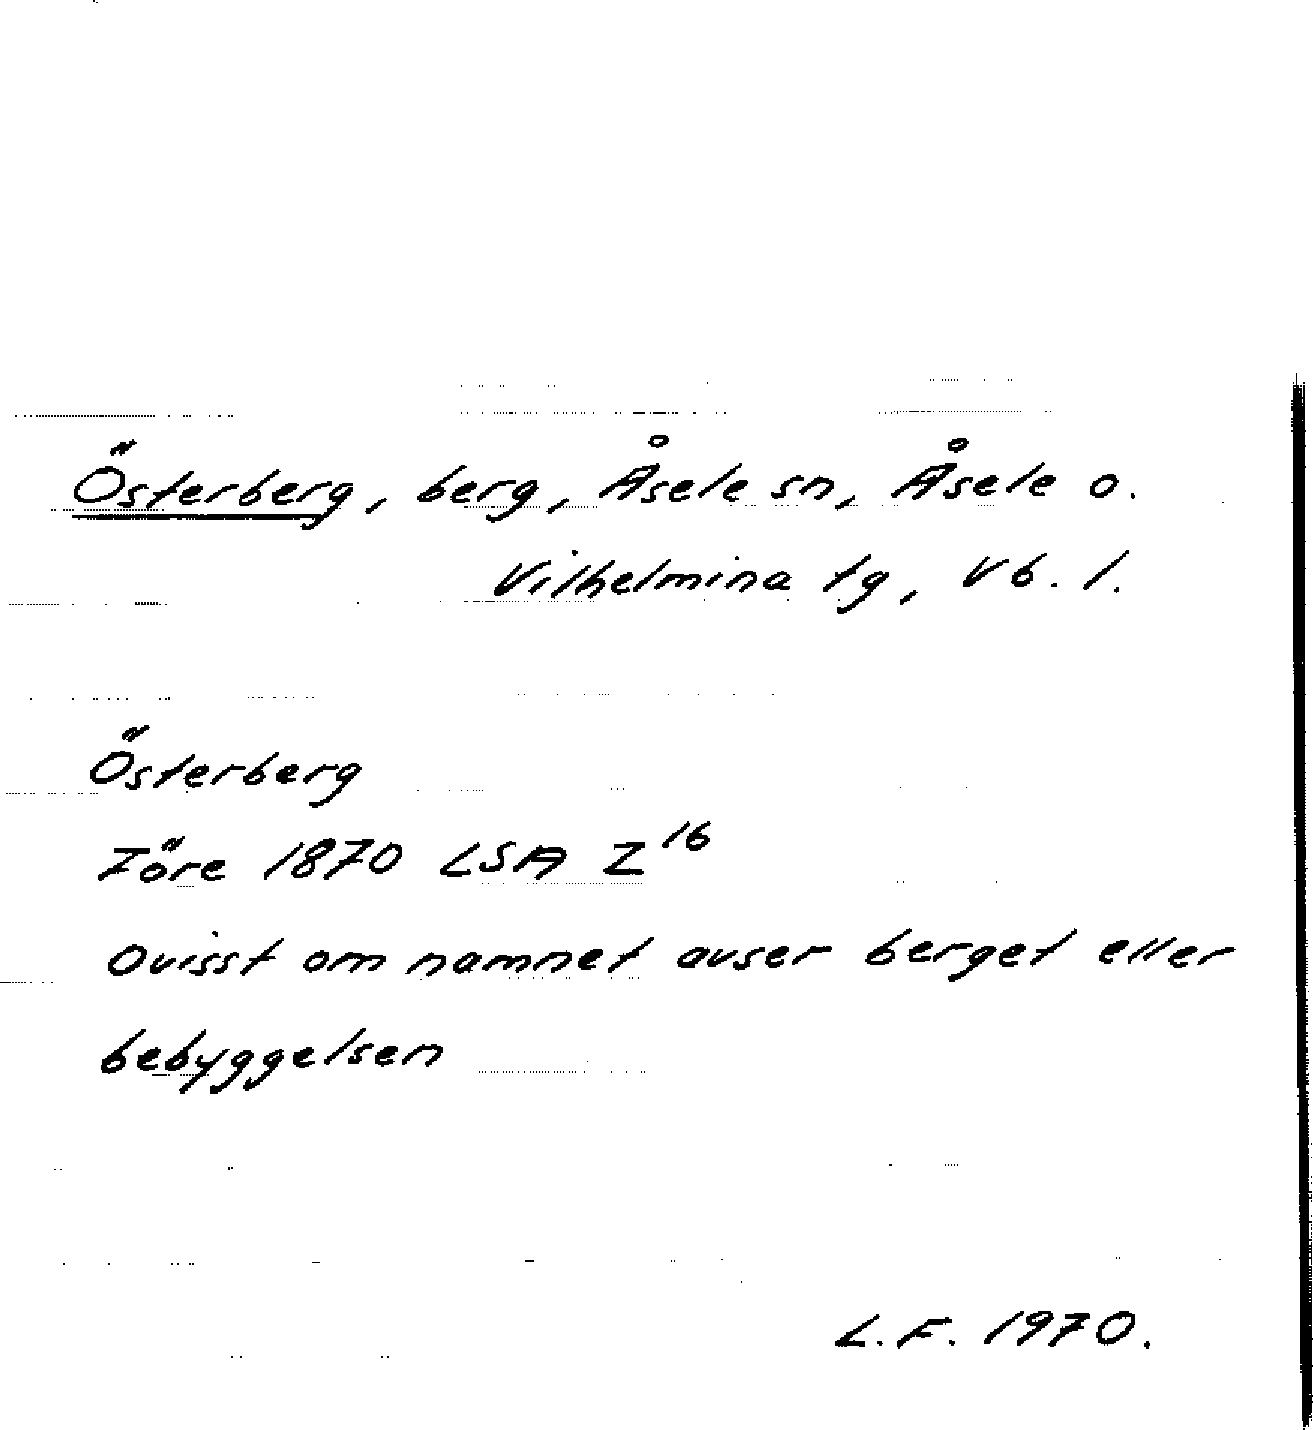 Österberg, berg, Åsele sn, Åsele o.
Vilhelmina tg, Vb. l.
Österberg
Före 1870 LSA Z16
Ovisst om namnet avser berget eller
bebyggelsen
L.F. 1970.